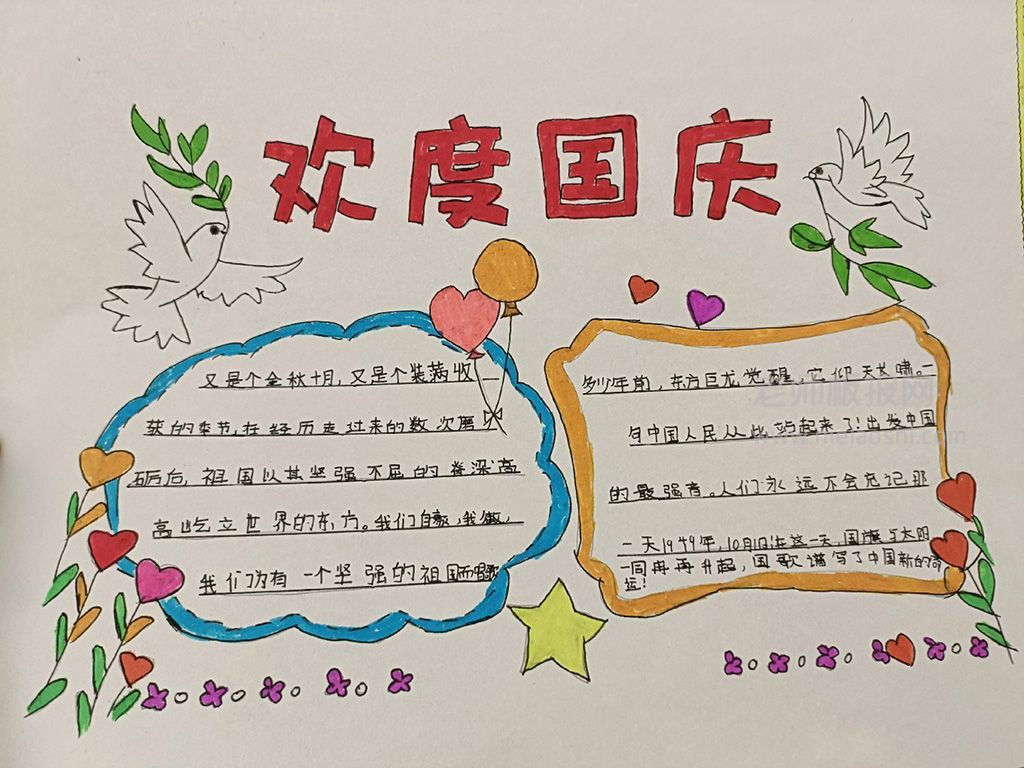 欢度国庆
又是个金秋十月,又是个装满收
获的季节,在经历走过来的数次磨
砺后,祖国以其坚强不屈的脊梁高
高屹立世界的东方。我们自豪,我傲,
我们为有一个坚强的祖国而
多少年前,东方巨龙觉醒,它仰天长啸。一
句中国人民从此站起来了!出发中国
的最强音。人们永远不会忘记那
一天1949年,10月1日在这一天,国旗与太阳
一同冉冉升起,国歌谱写了中国新的命
运!
老师板报网